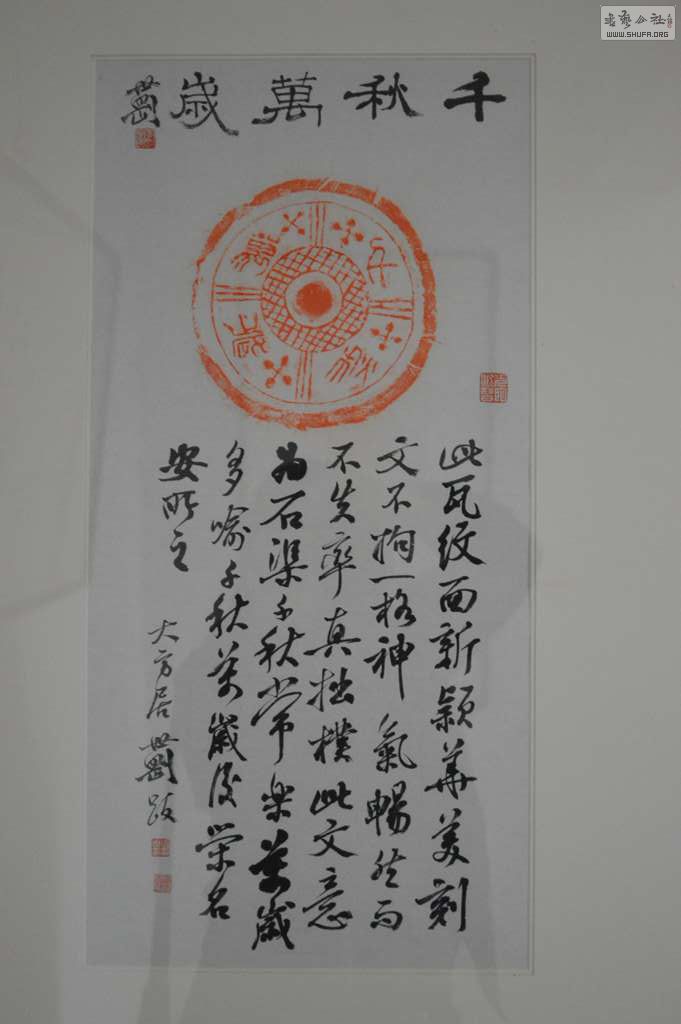 千秋萬歲
千秋萬歲
此瓦紋面新穎華美刻
文不拘一格神氣暢然而
不失率真拙樸此文意
為石渠千秋常樂萬歲
多喻千秋萬歲後榮名
安所之
大方居 跋
書藝公社
WWW.SHUFA.ORG